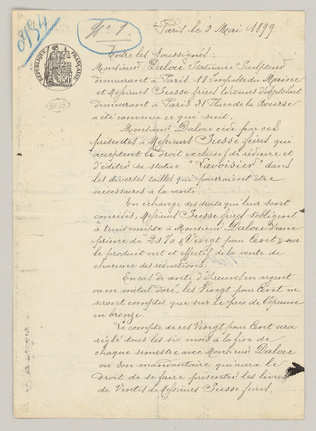 9134
N° 1.
Paris le 3 Mai 1899
RÉPUBLIQUE FRANÇAISE
Entre les Soussignés:
Monsieur Dalou Statuaire Sculpteur
demeurant à Paris 18 Impasse du Maine
et Messieurs Susse frères
demeurant à Paris 31 Place de la Bourse
a été convenu ce qui suit.
Monsieur Dalou cède par ces
présentes à Messieurs Susse frères qui
acceptent le droit exclusif de réduire et
d'éditer sa statue "Lavoisier" dans
les diverses tailles qui pourraient être
nécessaires à la vente.
En échange des droits qui leur sont
concédés, Messieurs Susse frères s'obligent
à tenir compte à Monsieur Dalou d'une
prime de 20 % Vingt pour Cent sur
le produit net et effectif de la vente de
chacune des réductions.
En cas de vente d'épreuves en argent
ou en métal doré, les Vingt pour Cent ne
seront comptés que sur le prix de l'épreuve
en bronze.
Le compte de ces Vingt pour Cent sera
réglé tous les six mois à la fin de
chaque semestre avec Monsieur Dalou
ou son mandataire qui aura le
Droit de se faire présenter les livres
de Ventes de Messieurs Susse frères.